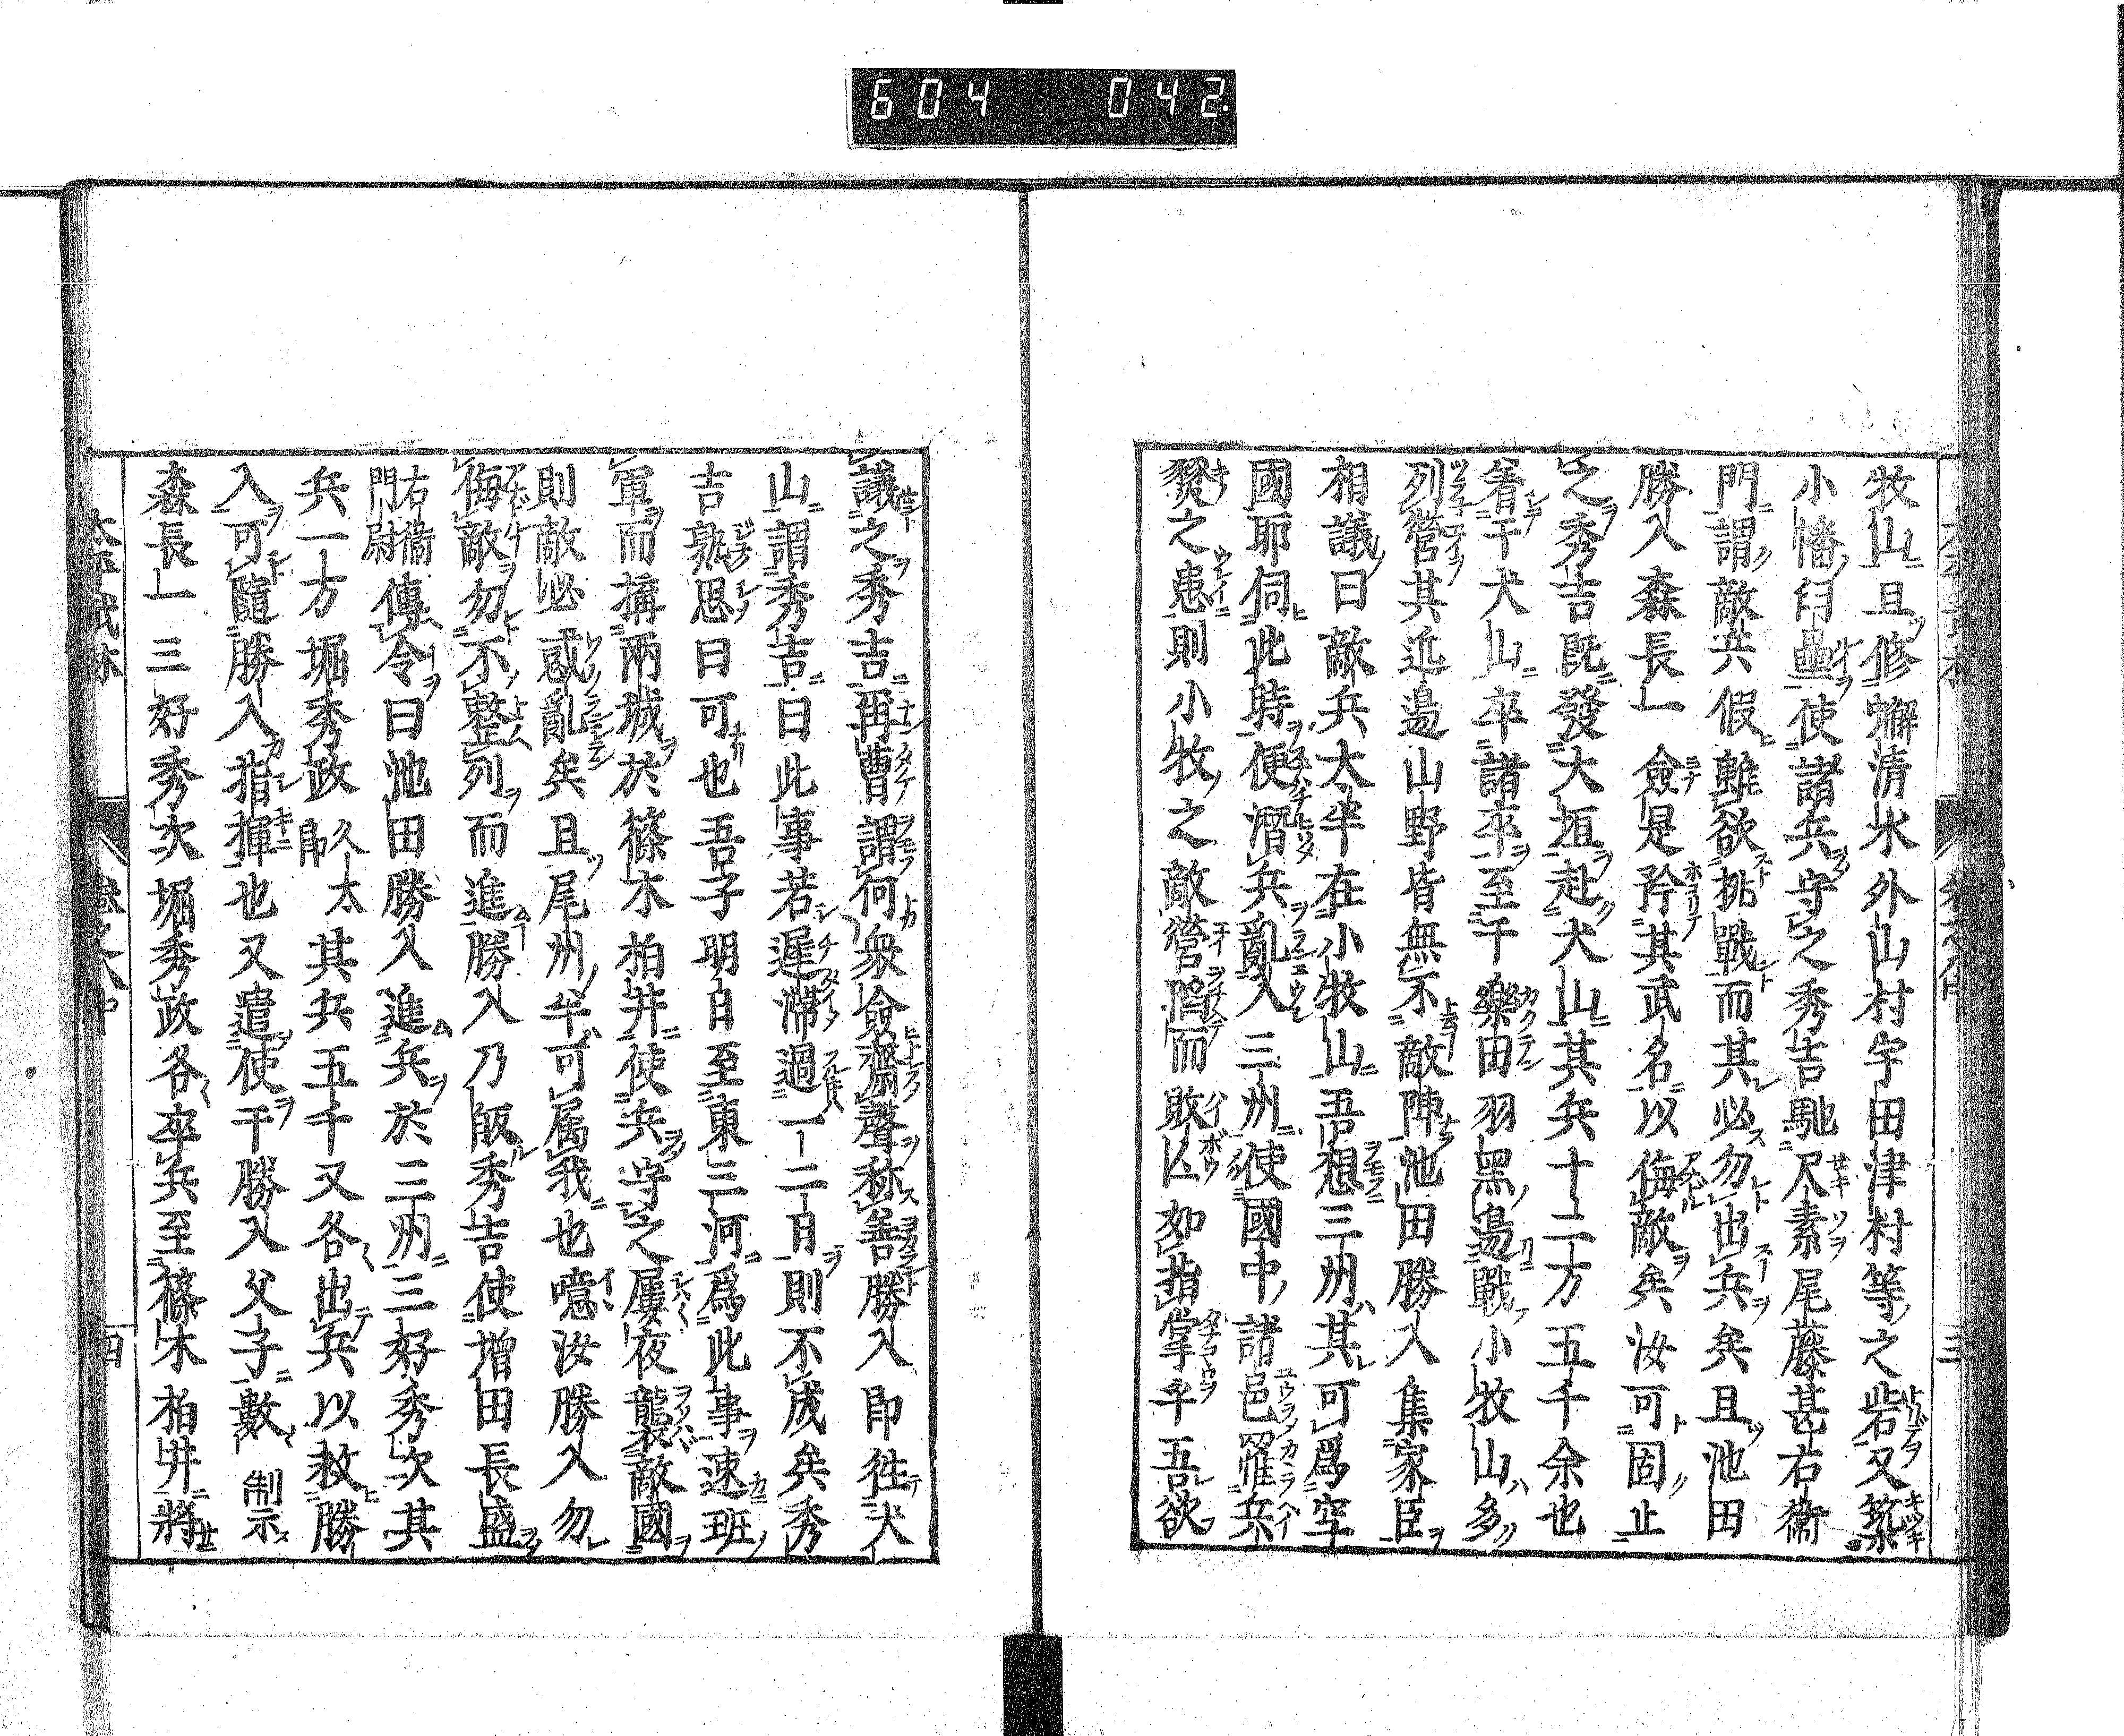 604 042
牧山且修蠏清水外山村宇田津村等之砦又築
小幡臼壘使諸兵守之秀吉馳尺素尾藤甚右衞
門謂敵共假雖欲挑戰而其必勿出兵矣且池田
勝入森長一僉是矜其武名以侮敵矣汝可固止
之秀吉既發大垣赴犬山其兵十二万五千余也
着于犬山卒諸卒至于樂田羽黑邊戰小牧山多
列營其近邊山野皆無不敵陣池田勝入集家臣
相議曰敵兵太半在小牧山吾想三州其可爲空
國耶伺此時便潛兵亂入三州使國中諸邑罹兵
燹之患則小牧之敵營 而敗亾如指掌乎吾欲
三
議之秀吉再曹謂何衆僉齋聲称善勝入即徃犬
山謂秀吉曰此事若遲滯過一二月則不成矣秀
吉熟思曰可也吾子明日至東三河爲此事速班
軍而搆兩城於篠木柏井使兵守之屢夜襲敵國
則敵必惑亂矣且尾州半可属我也噫汝勝入勿
侮敵勿不整列而進勝入乃皈秀吉使增田長盛
右衞門尉傳令曰池田勝入進兵於三州三好秀次其
兵一万堀秀政久太郎其兵五千又各出兵以救勝
入可隨勝入指揮也又遣使于勝入父子數制示
森長一三好秀次堀秀政各卒兵至篠木柏井將
四